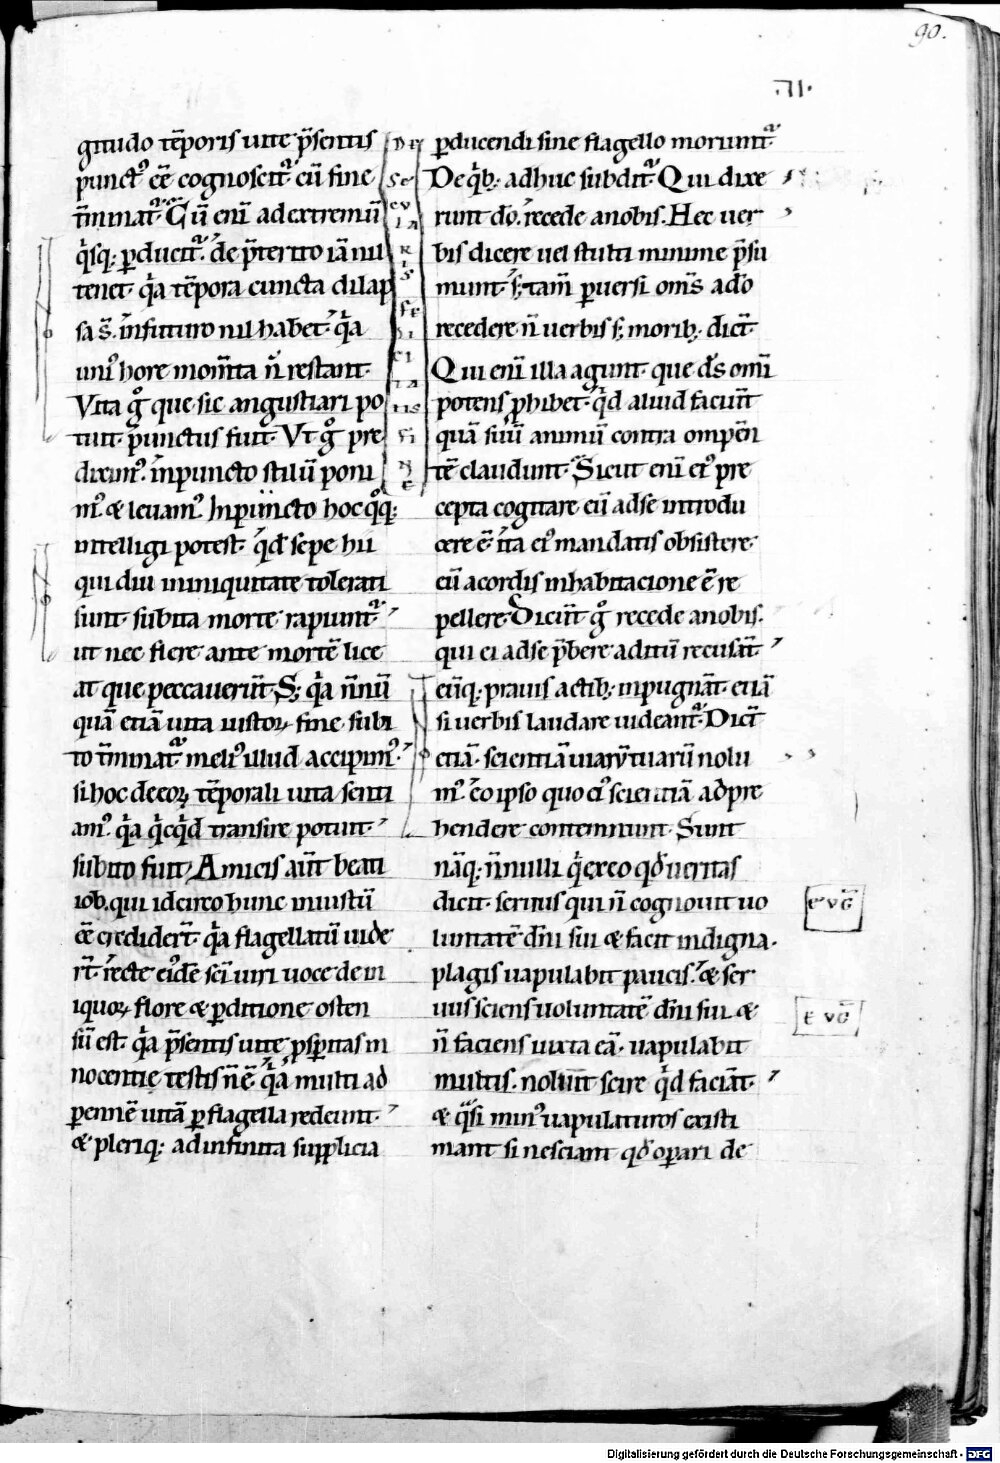 90.
gitudo tēporis uite p̄sentis
punctꝰ ēē cognoscit᷑ cū fine
t̄minat᷑. Cū eni ad extremū
q̇sq; ꝑducit᷑. de p̄terito iā nil
tenet. q̇a tēpora cuncta dilap
sa s̄. in futuro nil habet. q̇a
uniꝰ hore mom̄ta n̄ restant.
Vita g̊ que sic angustiari po
tuit. punctus fuit. Vt g̊ pre
diximꝰ. in puncto stilū poni
mꝰ & leuamꝰ. In puncto hoc q̊q;
intelligi potest. q̇d sepe hii
qui diu in iniquitate tolerati
sunt. subita morte rapiunt᷑.
ut nec flere ante mortē lice
at que peccauerūt. S; q̇a n̄nū
quā etiā uita iustoꝝ fine subi
to t̄minat᷑. meliꝰ illud accipimꝰ.
si hoc de eoꝝ tēporali uita senti
amꝰ. q̇a q̇cq̇d transire potuit.
subito fuit. Amicis aūt beati
iob. qui idcirco hunc iniustū
ēē credidert̄. q̇a flagellatū uide
rt̄. recte eiꝰdē sc̄i uiri uoce de in
iquoꝝ flore & ꝑditione osten
sū est. q̇a p̄sentis uite ꝓsꝑitas in
nocentię testis n̄ ē. q̇a multi ad
ꝑennē uitā ꝑ flagella redeunt.
& pleriq; ad infinita supplicia
De
se
cu
la
ri
s
fe
li
ci
ta
tis
fi
n
e
ꝑducendi sine flagello moriunt᷑
De q̇b; adhuc subdit᷑. Qui dixe
runt do. recede a nobis. Hec uer
bis dicere uel stulti minime p̄su
munt. s; tam̄ ꝑuersi om̄s a do
recedere n̄ uerbis s; morib; dict̄.
Qui eni illa agunt. que ds̄ om̄i
potens ꝓhibet. q̇d aliud faciūt
quā suū animū contra omp̄en
tē claudunt. Sicut eni eiꝰ pre
cepta cogitare eū ad se introdu
cere ē. ita eiꝰ mandatis obsistere.
eū a cordis inhabitacione ē re
pellere. Dicūt g̊ recede a nobis.
qui ei ad se p̄bere aditū recusāt.
eūq; prauis actib; inpugnāt. etiā
si uerbis laudare uideant᷑. Dict̄
etiā. scientiā uiaꝝ tuarū nolu
mꝰ. eo ipso quo eiꝰ scientiā adpre
hendere contemnunt. Sunt
nāq; n̄nulli q̇ ex eo qd̄ ueritas
dicit. seruus qui n̄ cognouit uo
luntatē dn̄i sui & facit indigna.
plagis uapulabit paucis. & ser
uus sciens uoluntatē dn̄i sui &
n̄ faciens iuxta eā. uapulabit
multis. nolunt scire q̇d faciāt.
& q̊si minꝰ uapulaturos existi
mant si nesciant qd̄ oꝑari de
Digitalisierung gefördert durch die Deutsche Forschungsgemeinschaft - DFG